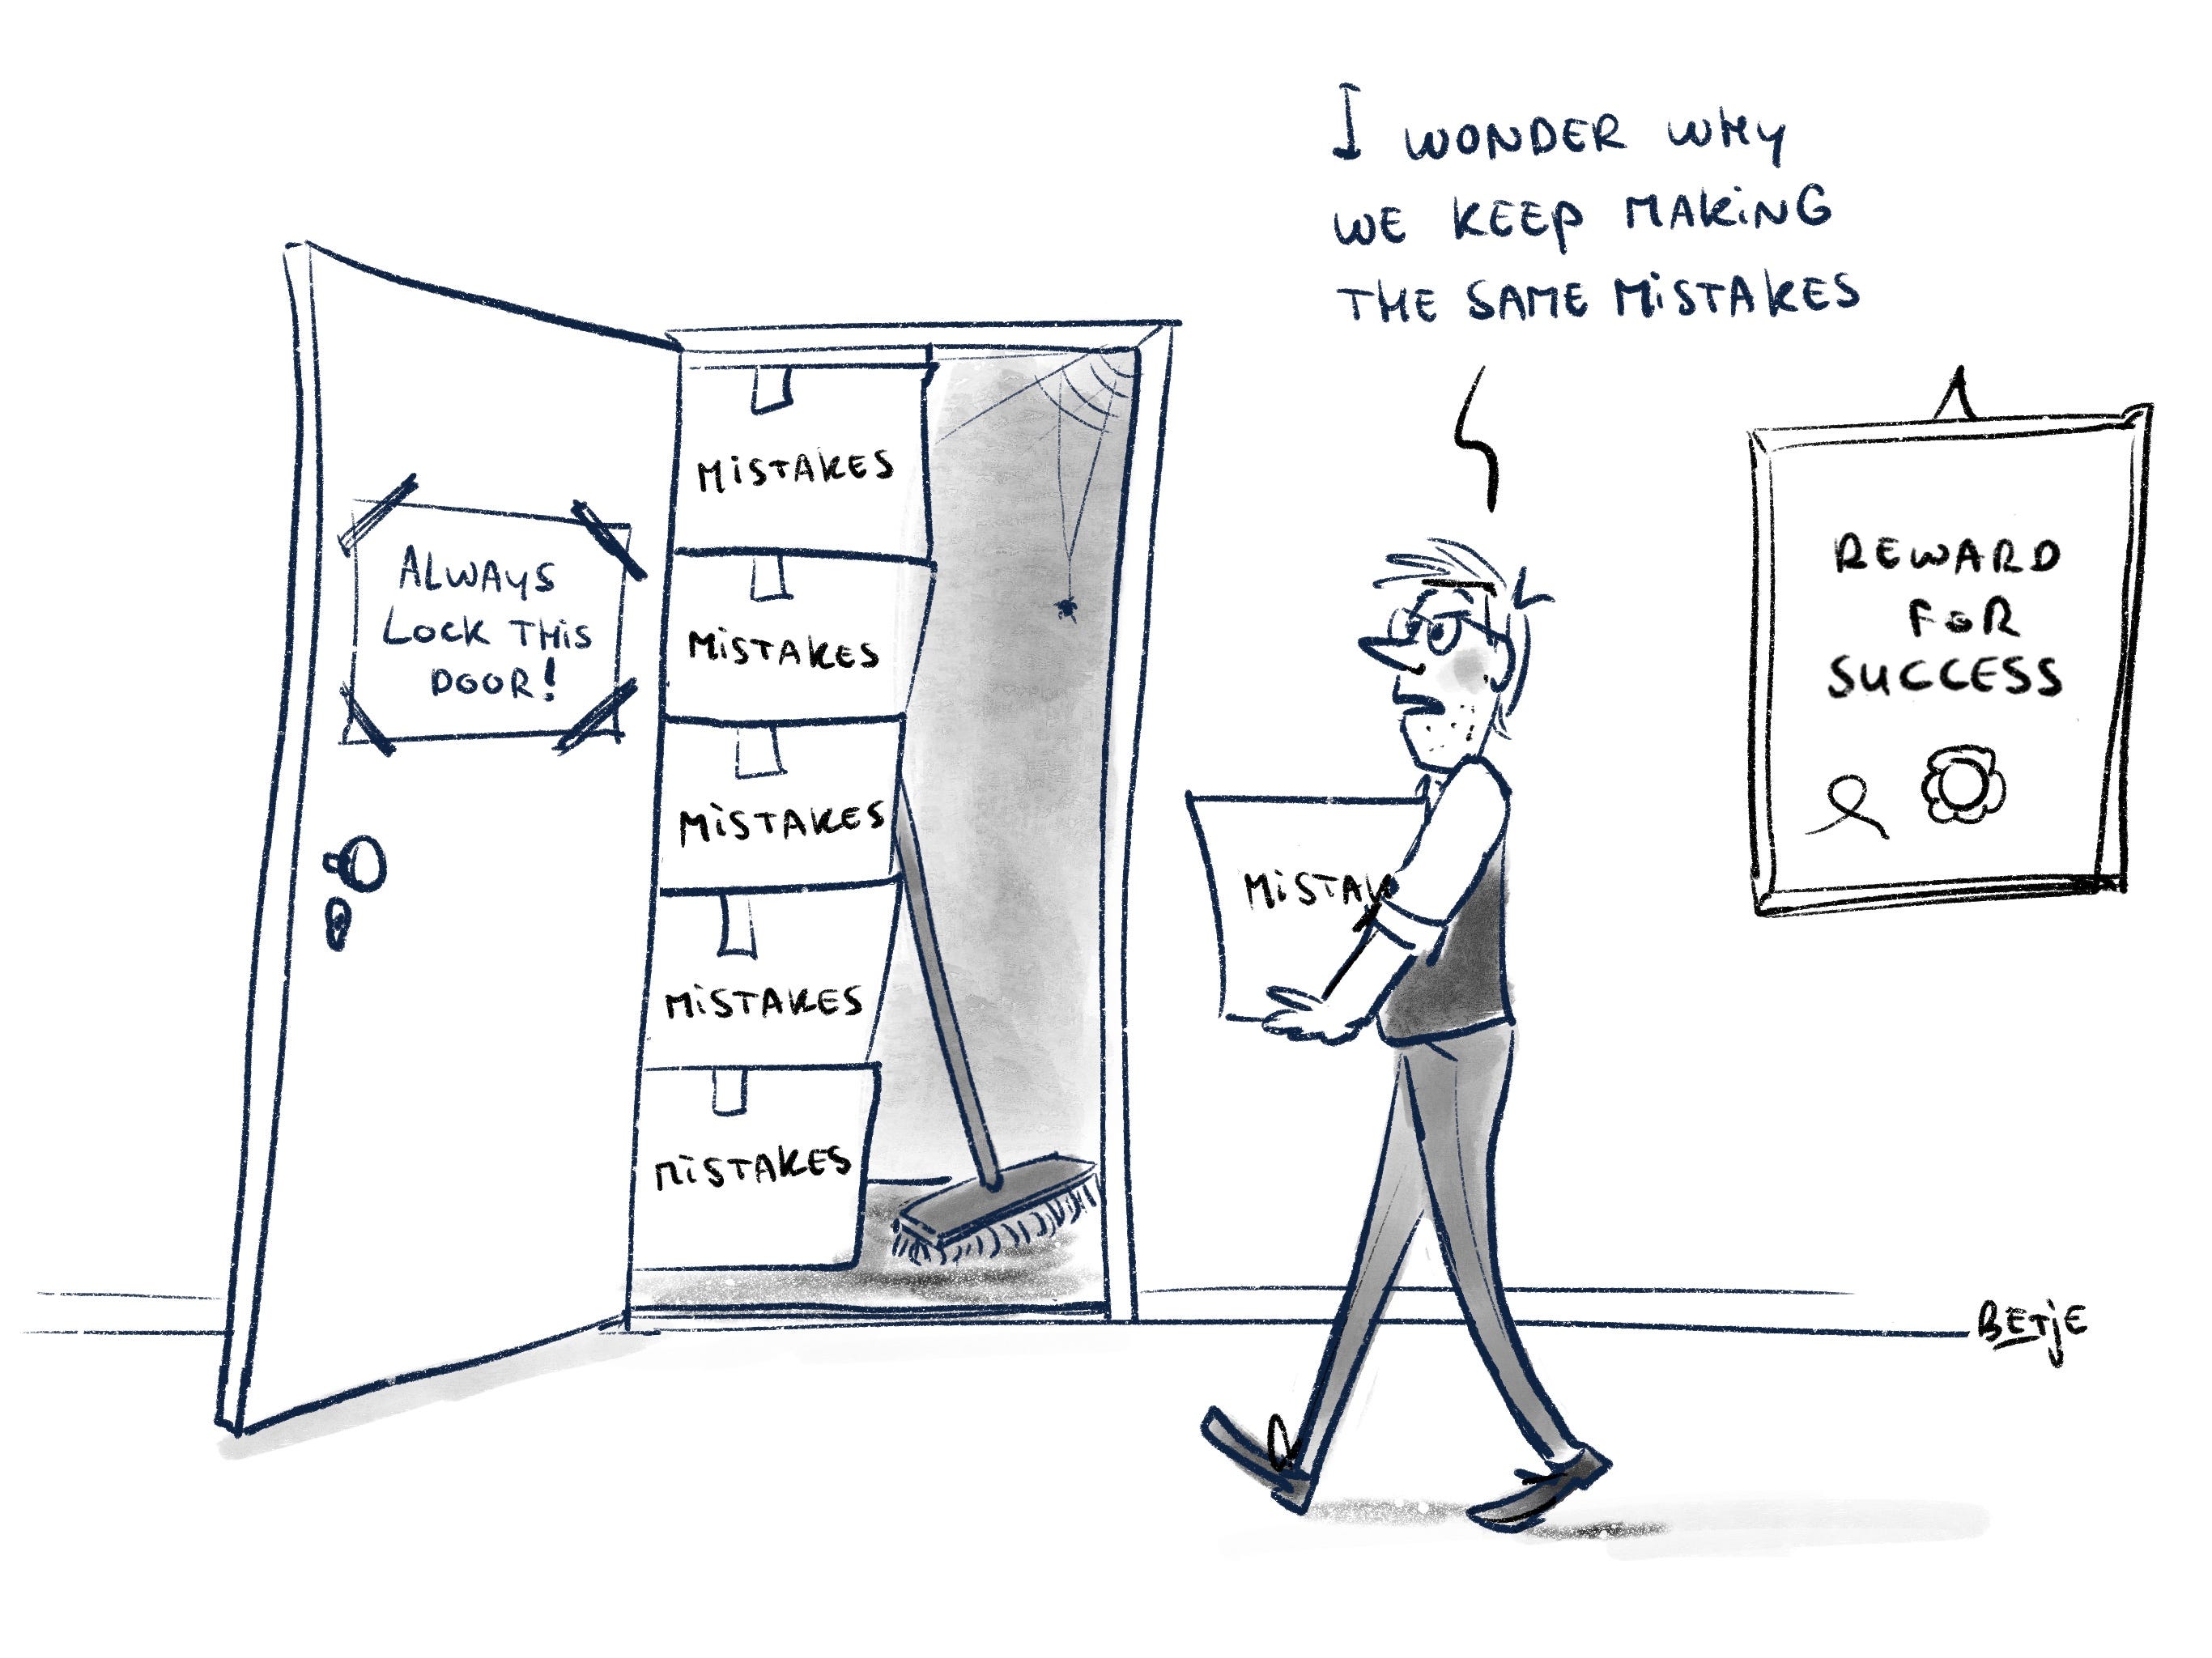 I WONDER WHY
WE KEEP MAKING
THE SAME MISTAKES
ALWAYS
LOCK THIS
DOOR!
MISTAKES
MISTAKES
MISTAKES
MISTAKES
MISTAKES
MISTAK
REWARD
FOR
SUCCESS
BETjE